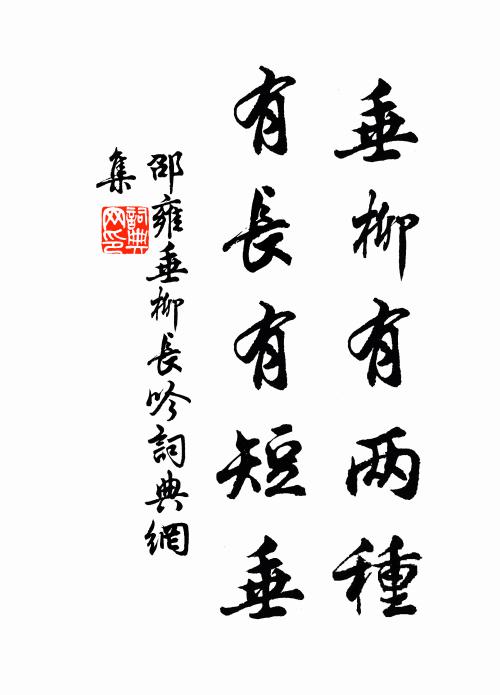 垂柳有两種
有長有短垂
邵雍垂柳長吟詞典網
集
詞典网印